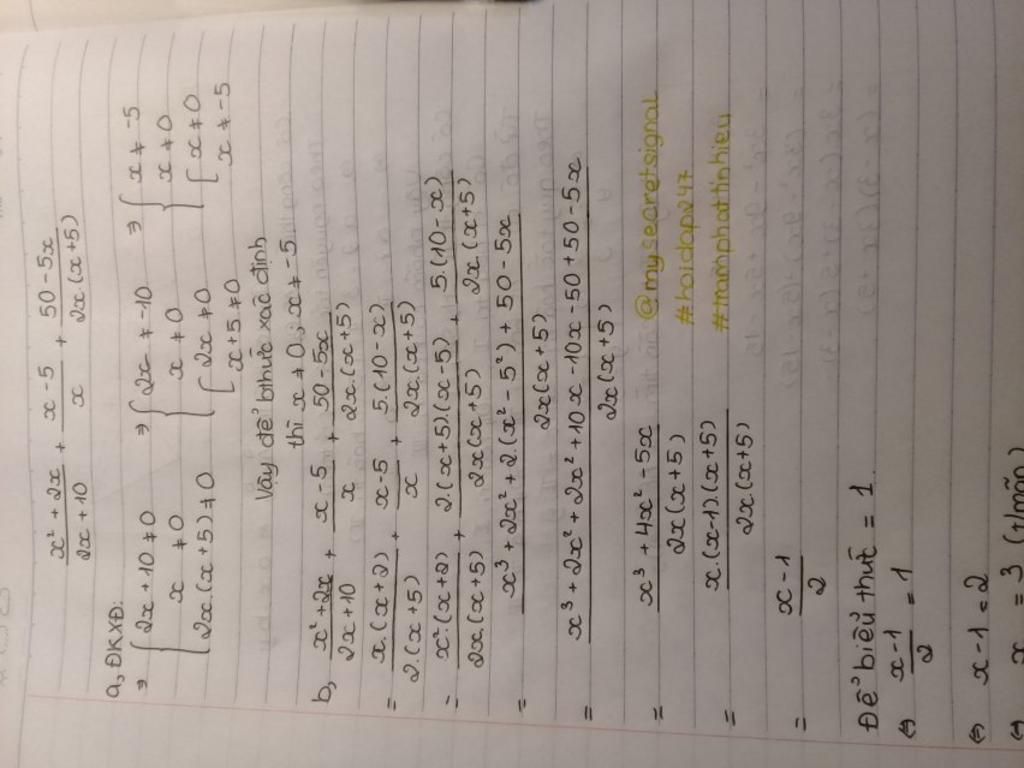 x² + 2x / 2x + 10 + x - 5 / x + 50 - 5x / 2x(x+5)
a, ĐKXĐ:
⇒ { 2x + 10 ≠ 0 ⇒ { 2x ≠ -10 ⇒ { x ≠ -5
x ≠ 0 x ≠ 0 x ≠ 0
2x.(x+5) ≠ 0 { 2x ≠ 0 { x ≠ 0
x+5 ≠ 0 x ≠ -5
Vậy để bthức xác định
thì x ≠ 0; x ≠ -5.
b, x² + 2x / 2x + 10 + x - 5 / x + 50 - 5x / 2x.(x+5)
= x.(x+2) / 2.(x+5) + x-5 / x + 5.(10-x) / 2x(x+5)
= x².(x+2) / 2x(x+5) + 2.(x+5)(x-5) / 2x(x+5) + 5.(10-x) / 2x.(x+5)
= x³ + 2x² + 2.(x² - 5²) + 50 - 5x / 2x(x+5)
= x³ + 2x² + 2x² + 10x - 10x - 50 + 50 - 5x / 2x(x+5)
= x³ + 4x² - 5x / 2x(x+5)
@mysecretsignal
#hoidap247
= x.(x-1).(x+5) / 2x(x+5)
#toámphattinhieu
= x - 1 / 2
Để biểu thức = 1.
⇔ x-1 / 2 = 1
⇔ x - 1 = 2
⇔ x = 3 (t/mãn)